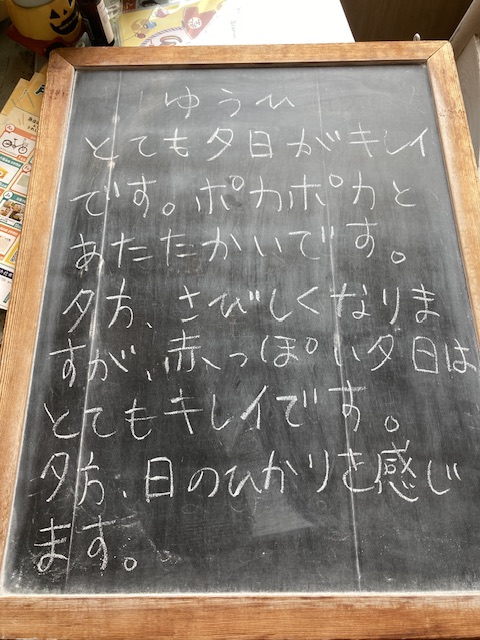 ゆうひ
とても夕日がキレイ
です。ポカポカと
あたたかいです。
夕方、さびしくなりま
すが、赤っぽい夕日は
とてもキレイです。
夕方、日のひかりを感じ
ます。